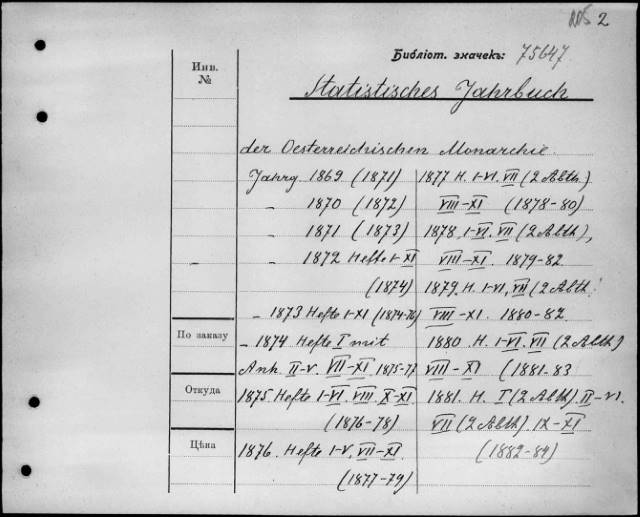 2
Библіот. значекъ: 75647
Инв.
№
Statistisches Jahrbuch
der Oesterreichischen Monarchie.
Jahrg 1869 (1871)
„ 1870 (1872)
„ 1871 (1873)
„ 1872 Hefte I-XI
(1874)
„ 1873 Hefte I-XI (1874-76)
„ 1874 Hefte I mit
Anh. II-V. VII-XI. 1875-77
1875. Hefte I-VI. VIII. X-XI
(1876-78)
1876. Hefte I-V. VII-XI.
(1877-79)
1877 H. I-VI. VII (2 Abth.)
VIII-XI (1878-80)
1878 I-VI. VII (2 Abth),
VIII-XI. 1879-82
1879. H. I-VI, VII (2 Abth.
VIII-XI. 1880-82.
1880 H. I-VI. VII (2 Abth)
VIII-XI (1881-83
1881. H. I (2 Abth). II-VI.
VII (2 Abth). IX-XI
(1882-84)
По заказу
Откуда
Цѣна